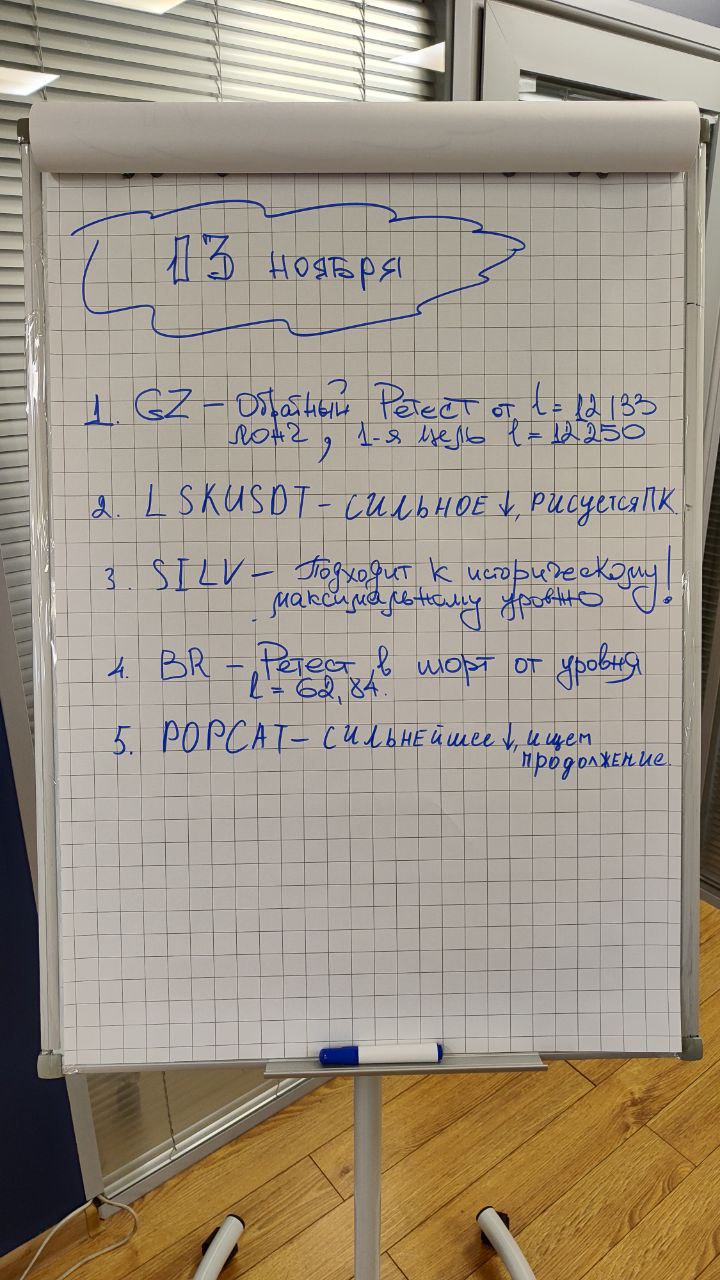 13 ноября
1. GZ – Обратный Ретест от l = 12133
лонг, 1-я цель l = 12250
2. LSKUSDT – сильное ↓, рисуется ПК
3. SILV – Подходит к историческому!
максимальному уровню
4. BR – Ретест в шорт от уровня
l = 62,84.
5. POPCAT – сильнейшее ↓, ищем
продолжение.